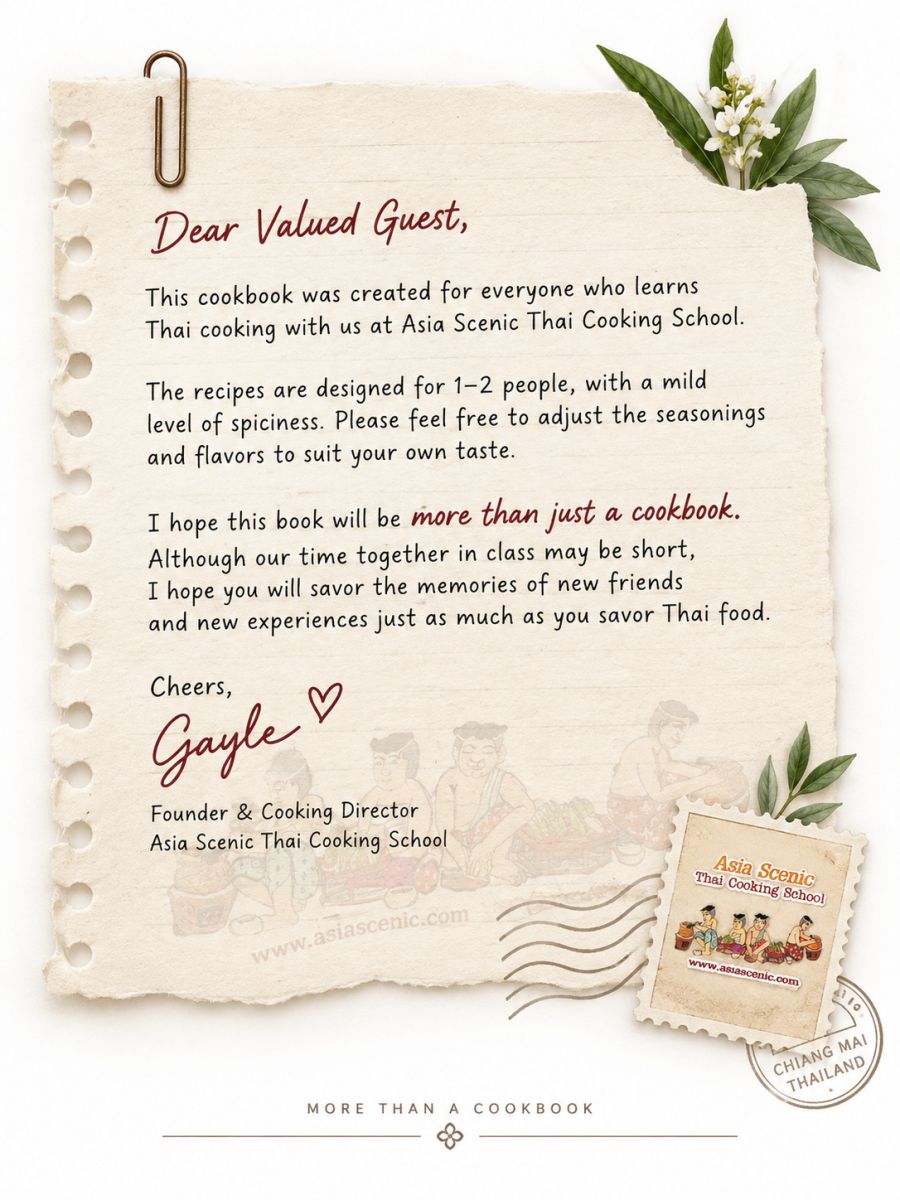 Dear Valued Guest,
This cookbook was created for everyone who learns
Thai cooking with us at Asia Scenic Thai Cooking School.
The recipes are designed for 1–2 people, with a mild
level of spiciness. Please feel free to adjust the seasonings
and flavors to suit your own taste.
I hope this book will be more than just a cookbook.
Although our time together in class may be short,
I hope you will savor the memories of new friends
and new experiences just as much as you savor Thai food.
Cheers,
Gayle
Founder & Cooking Director
Asia Scenic Thai Cooking School
www.asiascenic.com
Asia Scenic
Thai Cooking School
www.asiascenic.com
CHIANG MAI
THAILAND
MORE THAN A COOKBOOK